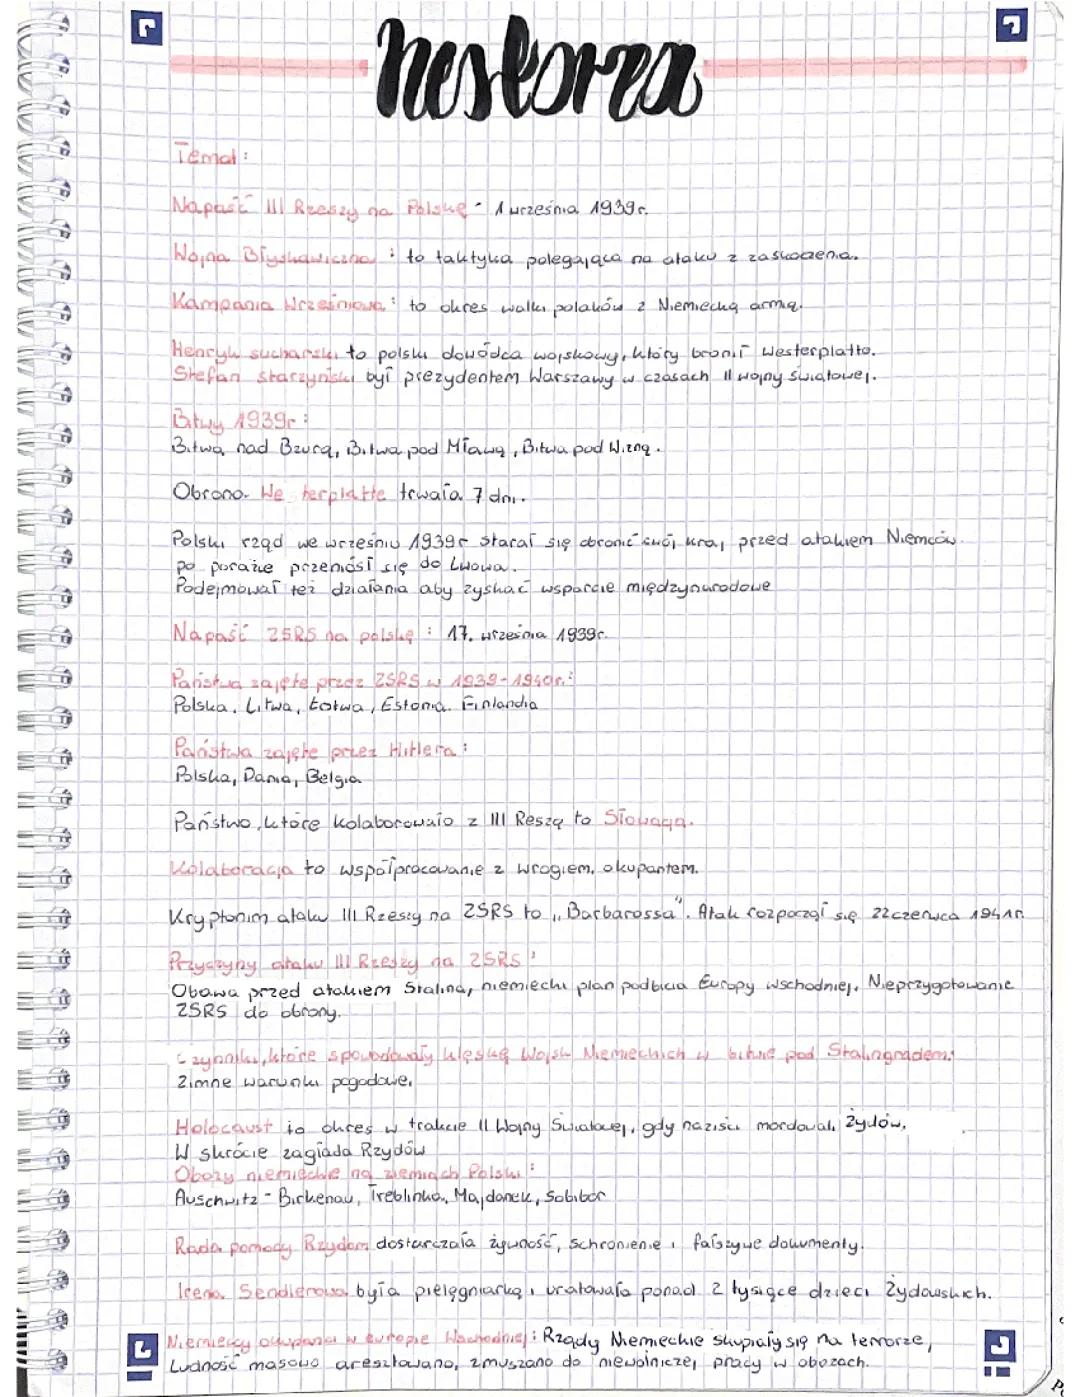 hestorza
Temat:
Napaść III Rzeszy na Polskę - 1 września 1939r.
Wojna Błyskawiczna : to taktyka polegająca na ataku z zaskoczenia.
Kampania Wrześniowa : to okres walki polaków z Niemiecką armią.
Henryk sucharski to polski dowódca wojskowy, który bronił Westerplatto.
Stefan starzyński był prezydentem Warszawy w czasach II wojny światowej.
Bitwy 1939r :
Bitwa nad Bzurą, Bitwa pod Mławą, Bitwa pod Wizną.
Obrona We terplatte trwała 7 dni.
Polski rząd we wrześniu 1939r starał się obronić swój kraj przed atakiem Niemców.
po porażce przeniósł się do Lwowa.
Podejmował też działania aby zyskać wsparcie międzynarodowe
Napaść ZSRS na polskę : 17. września 1939r.
Państwa zajęte przez ZSRS w 1939-1940r.:
Polska, Litwa, Łotwa, Estonia, Finlandia
Państwa zajęte przez Hitlera :
Polska, Dania, Belgia
Państwo, które kolaborowało z III Reszą to Słowacja.
Kolaboracja to współpracowanie z wrogiem, okupantem.
Kryptonim ataku III Rzeszy na ZSRS to „Barbarossa". Atak rozpoczął się 22 czerwca 1941r.
Przyczyny ataku III Rzeszy na ZSRS :
Obawa przed atakiem Stalina, niemiecki plan podbicia Europy wschodniej, Nieprzygotowanie
ZSRS do obrony.
Czynniki, które spowodowały klęskę Wojsk Niemieckich w bitwie pod Stalingradem:
Zimne warunki pogodowe.
Holocaust to okres w trakcie II Wojny Światowej, gdy naziści mordowali Żydów,
W skrócie zagłada Rzydów
Obozy niemieckie na ziemiach Polski :
Auschwitz - Birkenau, Treblinka, Majdanek, Sobibor
Rada pomocy Rzydom dostarczała żywność, schronienie i fałszywe dokumenty.
Irena Sendlerowa była pielęgniarką i uratowała ponad 2 tysiące dzieci Żydowskich.
Niemieccy okupanci w Europie Wschodniej : Rządy Niemieckie skupiały się na terrorze,
Ludność masowo aresztowano, zmuszano do niewolniczej pracy w obozach.